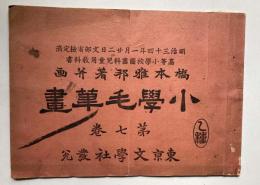 明治三十四年一月廿二日文部省検定済
高等小學校圖畫科兒童用教科書
橋本雅邦著并画
小學毛筆畫
第七巻
東京文學社發兌
乙種